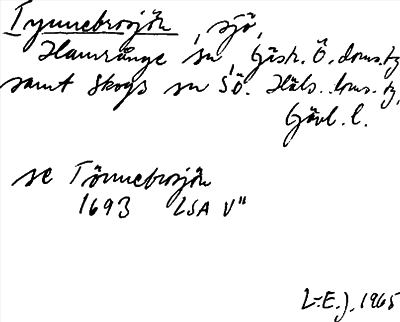 Tynnebrosjön, sjö,
Hamrånge sn, Gästr. Ö. doms. tg
samt Skogs sn, S.Ö. Häls. doms. tg,
Gävl. l.
se Tönnebrosjön
1693 LSA V"
L-E. J. 1965